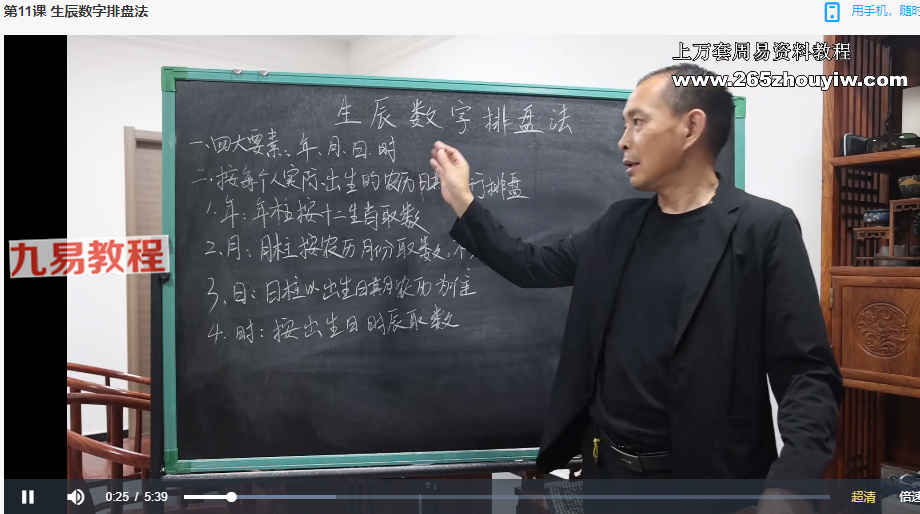 第11课 生辰数字排盘法
用手机，随时
上万套周易资料教程
www.265zhouyiw.com
生辰数字排盘法
一、四大要素、年、月、日、时
二、按每个人实际出生的农历 行排盘
1. 年：年柱按十二生肖取数
2. 月：月柱按农历月份取数，不
3. 日：日柱以出生日其月农历为准
4. 时：按出生日时辰取数
九易教程
0:25 / 5:39
超清
倍速